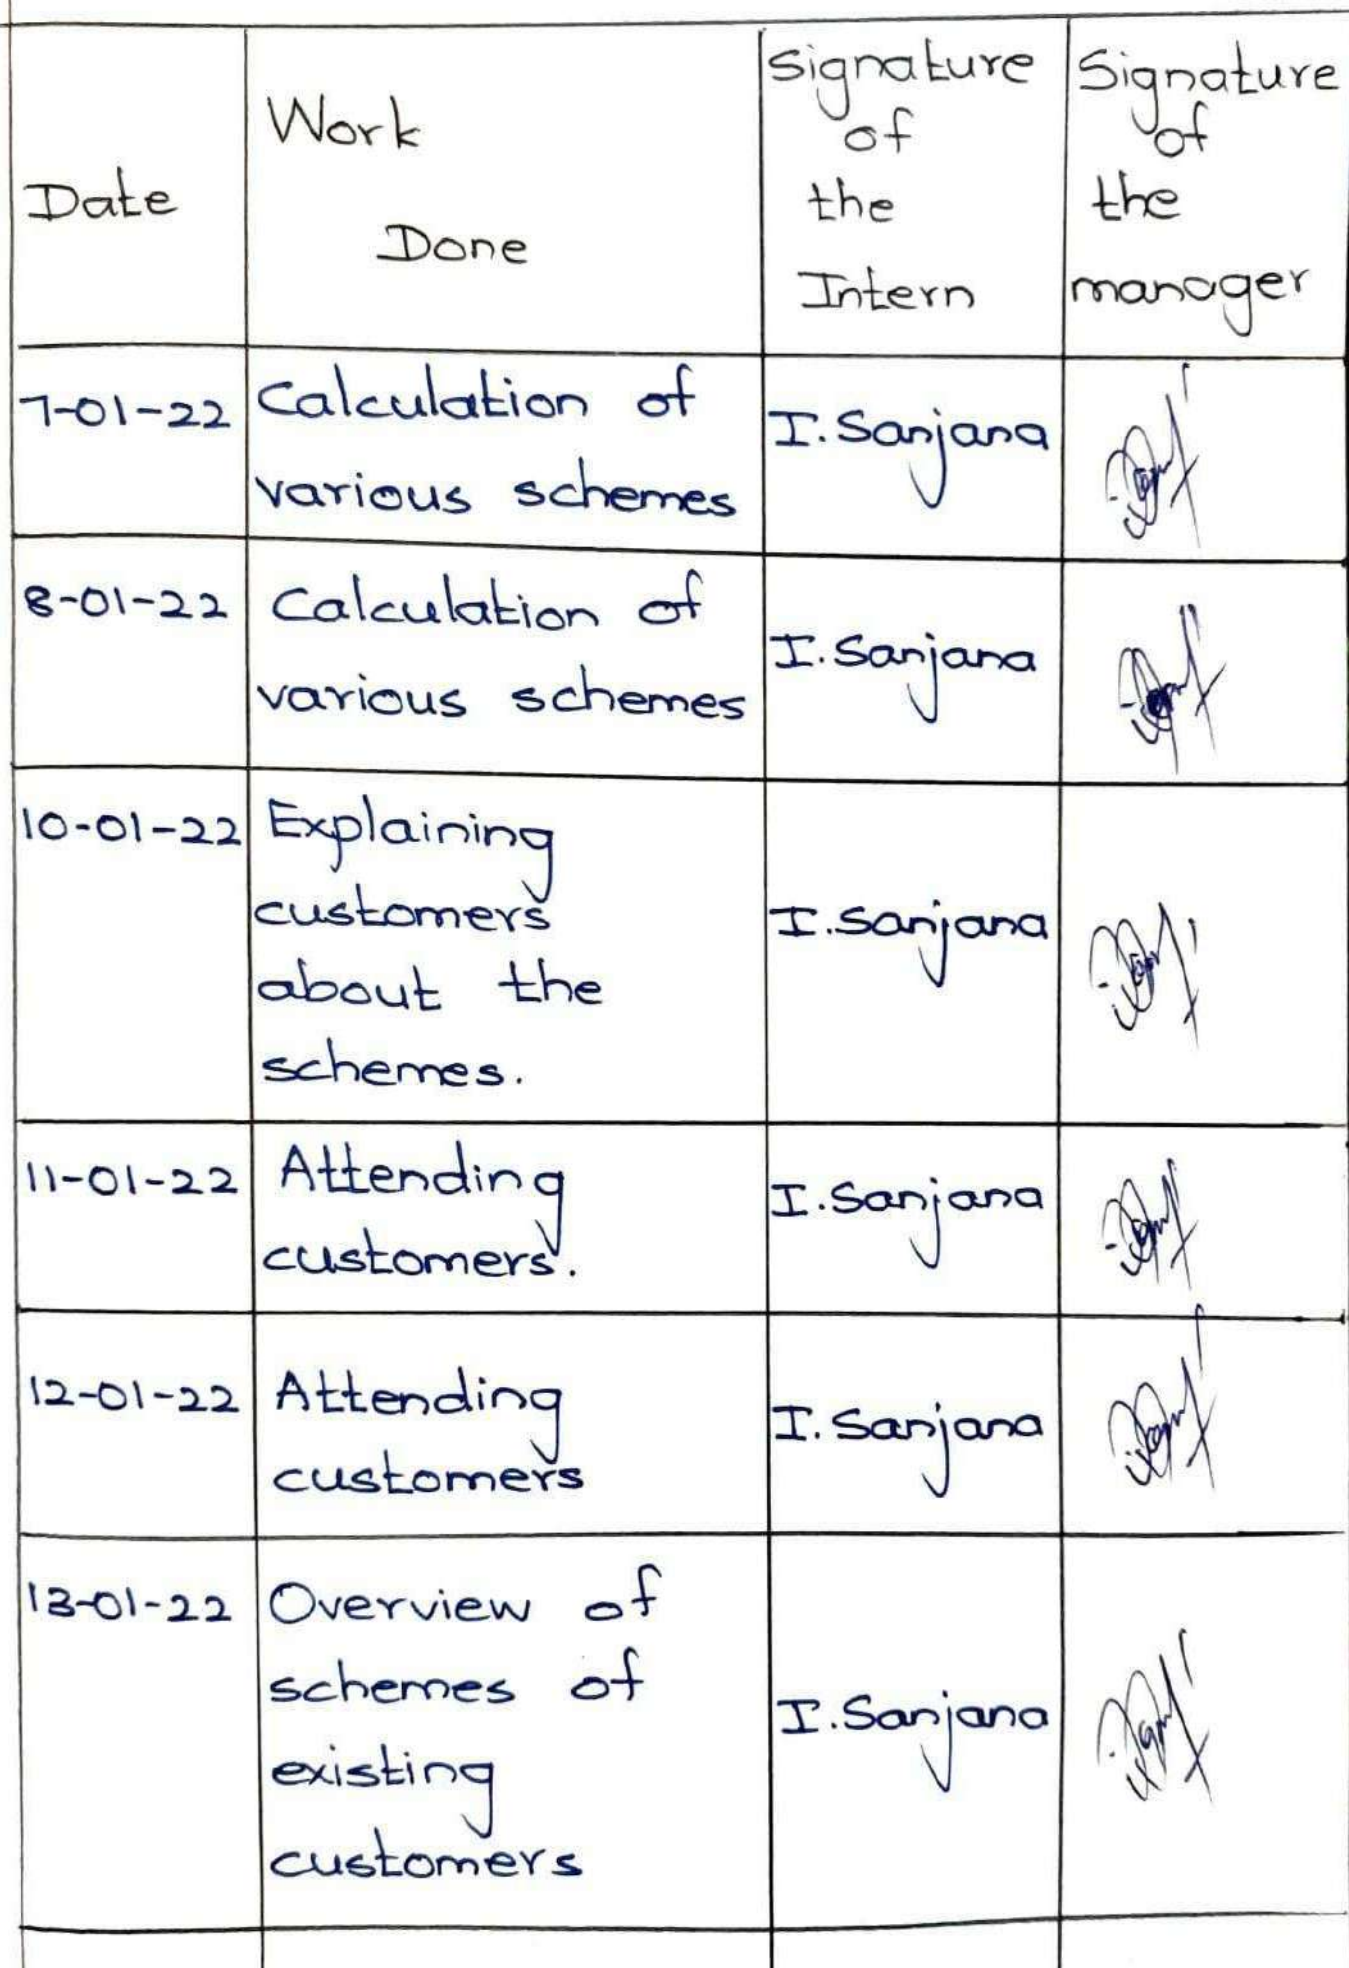 Date
Work
Done
Signature
of
the
Intern
Signature
of
the
manager
7-01-22
Calculation of
various schemes
I. Sanjana
8-01-22
Calculation of
various schemes
I. Sanjana
10-01-22
Explaining
customers
about the
schemes.
I. Sanjana
11-01-22
Attending
customers.
I. Sanjana
12-01-22
Attending
customers
I. Sanjana
13-01-22
Overview of
schemes of
existing
customers
I. Sanjana